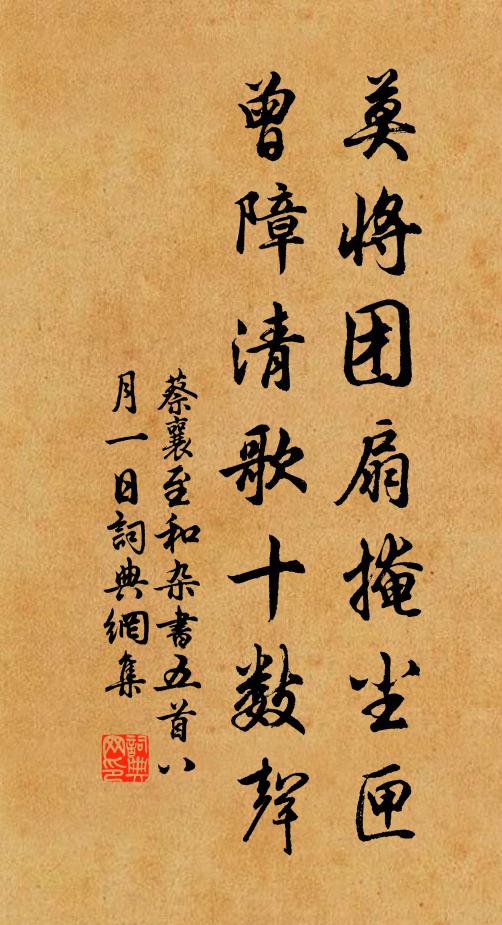 莫将团扇掩尘匣
曾障清歌十数聲
蔡襄至和杂書五首八
月一日詞典網集
詞典
网印